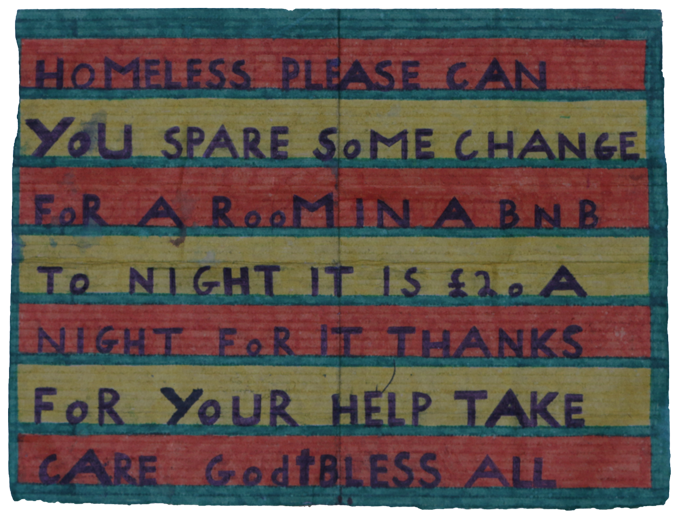 HOMELESS PLEASE CAN
YOU SPARE SOME CHANGE
FOR A ROOM IN A BNB
TO NIGHT IT IS £20 A
NIGHT FOR IT THANKS
FOR YOUR HELP TAKE
CARE God†BLESS ALL